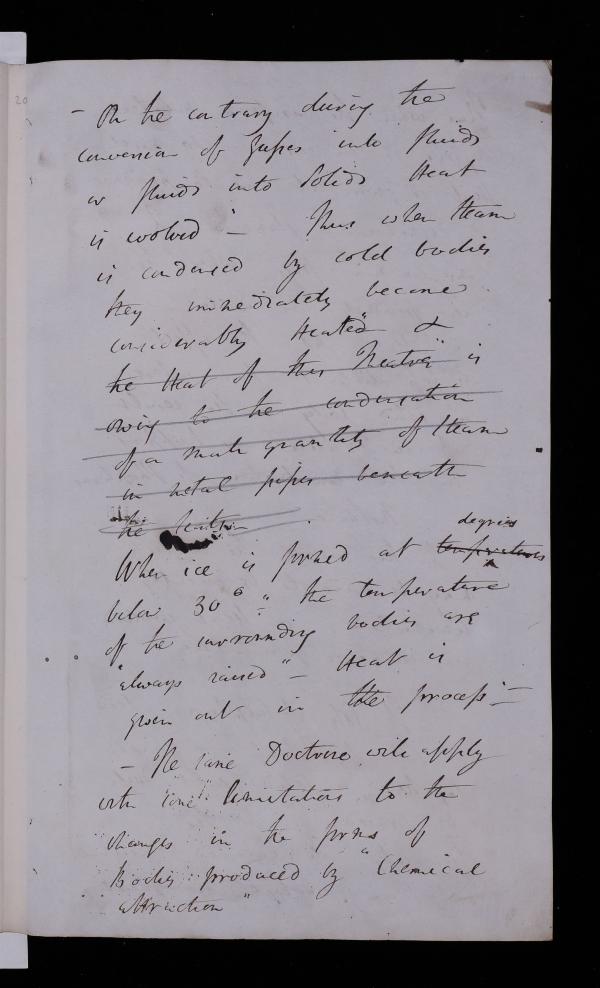 20
- On the contrary during the
conversion of Gasses into fluids
or fluids into Solids Heat
is evolved - Thus when steam
is condensed by cold bodies
they immediately become
considerably Heated &
the Heat of this Theatre is
owing to the condensation
of a small quantity of steam
in metal pipes beneath
the
degrees
When ice is formed at temperatures
below 30° the temperature
of the surrounding bodies are
"always raised" - Heat is
given out in the process -
- The same Doctrine will apply
with some limitations to the
changes in the forms of
Bodies produced by "Chemical
attraction"